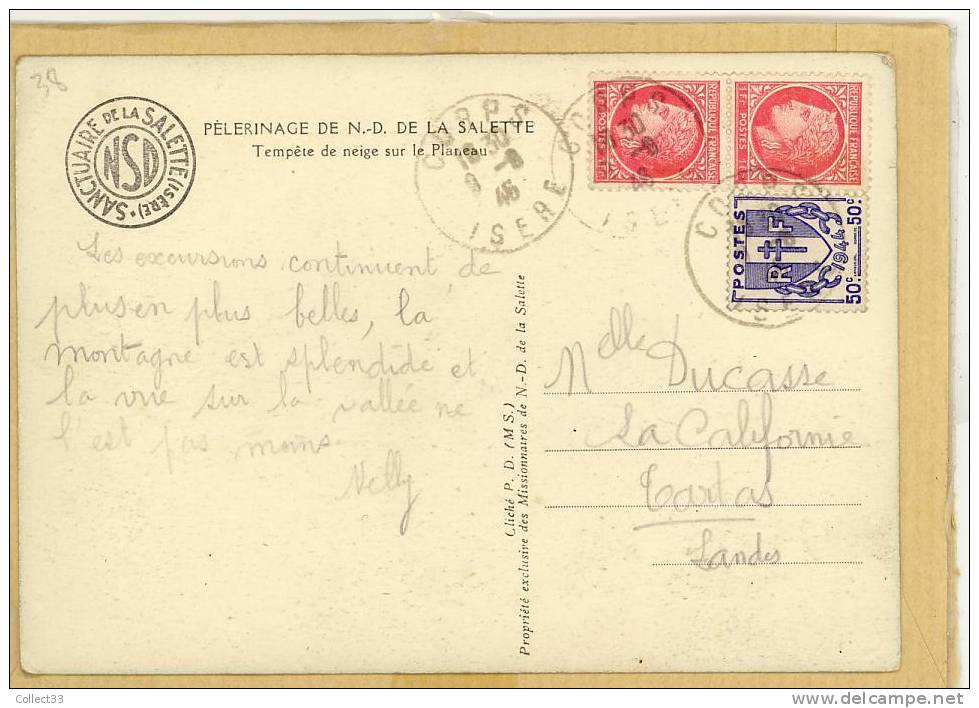 38
SANCTUAIRE DE LA SALETTE (ISÈRE)
NSD
PÈLERINAGE DE N.-D. DE LA SALETTE
Tempête de neige sur le Planeau
CORPS
30
9 -8
46
ISERE
CORPS
30
46
ISE
REPUBLIQUE FRANCAISE
POSTES
REPUBLIQUE FRANCAISE
1F POSTES 1F
POSTES
RF
1944
50c
50c
Les excursions continuent de
plus en plus belles, la
montagne est splendide et
la vue sur la vallée ne
l'est pas moins
Nelly
Cliché P. D. (M S.)
Propriété exclusive des Missionnaires de N.-D. de la Salette
Melle Ducasse
La Californie
Tartas
Landes
Collect33
www.delcampe.net